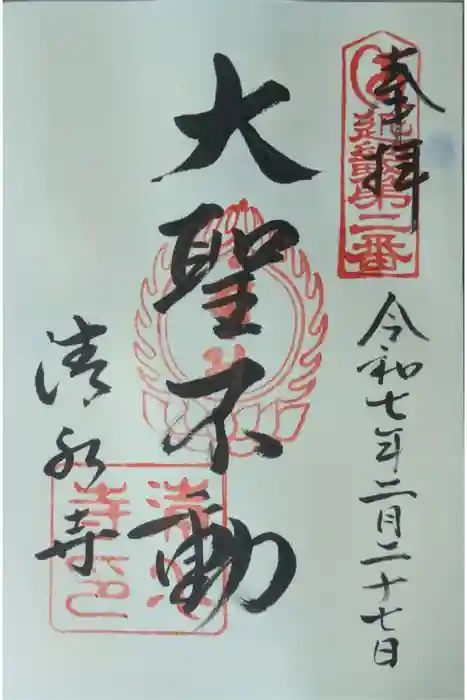 奉拝
近畿第二番
令和七年二月二十七日
大聖不動
清水寺
清水
寺印